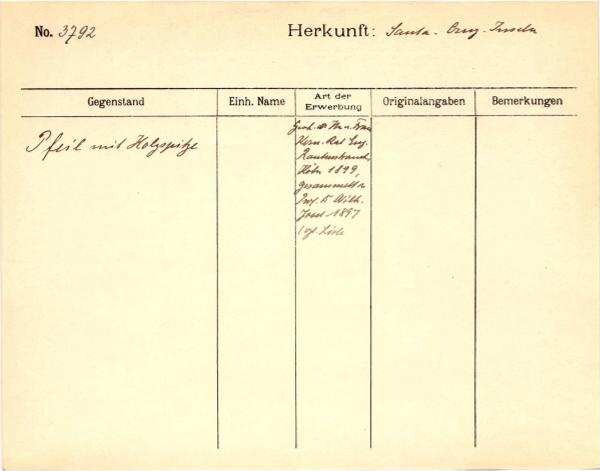 No. 3792 Herkunft: Santa-Cruz-Inseln
Gegenstand Einh. Name Art der Erwerbung Originalangaben Bemerkungen
Pfeil mit Holzspitze
Gesch. d. Hn. u. Frau
Kom. Rat Eug.
Rautenstrauch,
Köln 1899,
gesammelt v.
Prof. Dr Wilh.
Joest 1897
(cf Liste